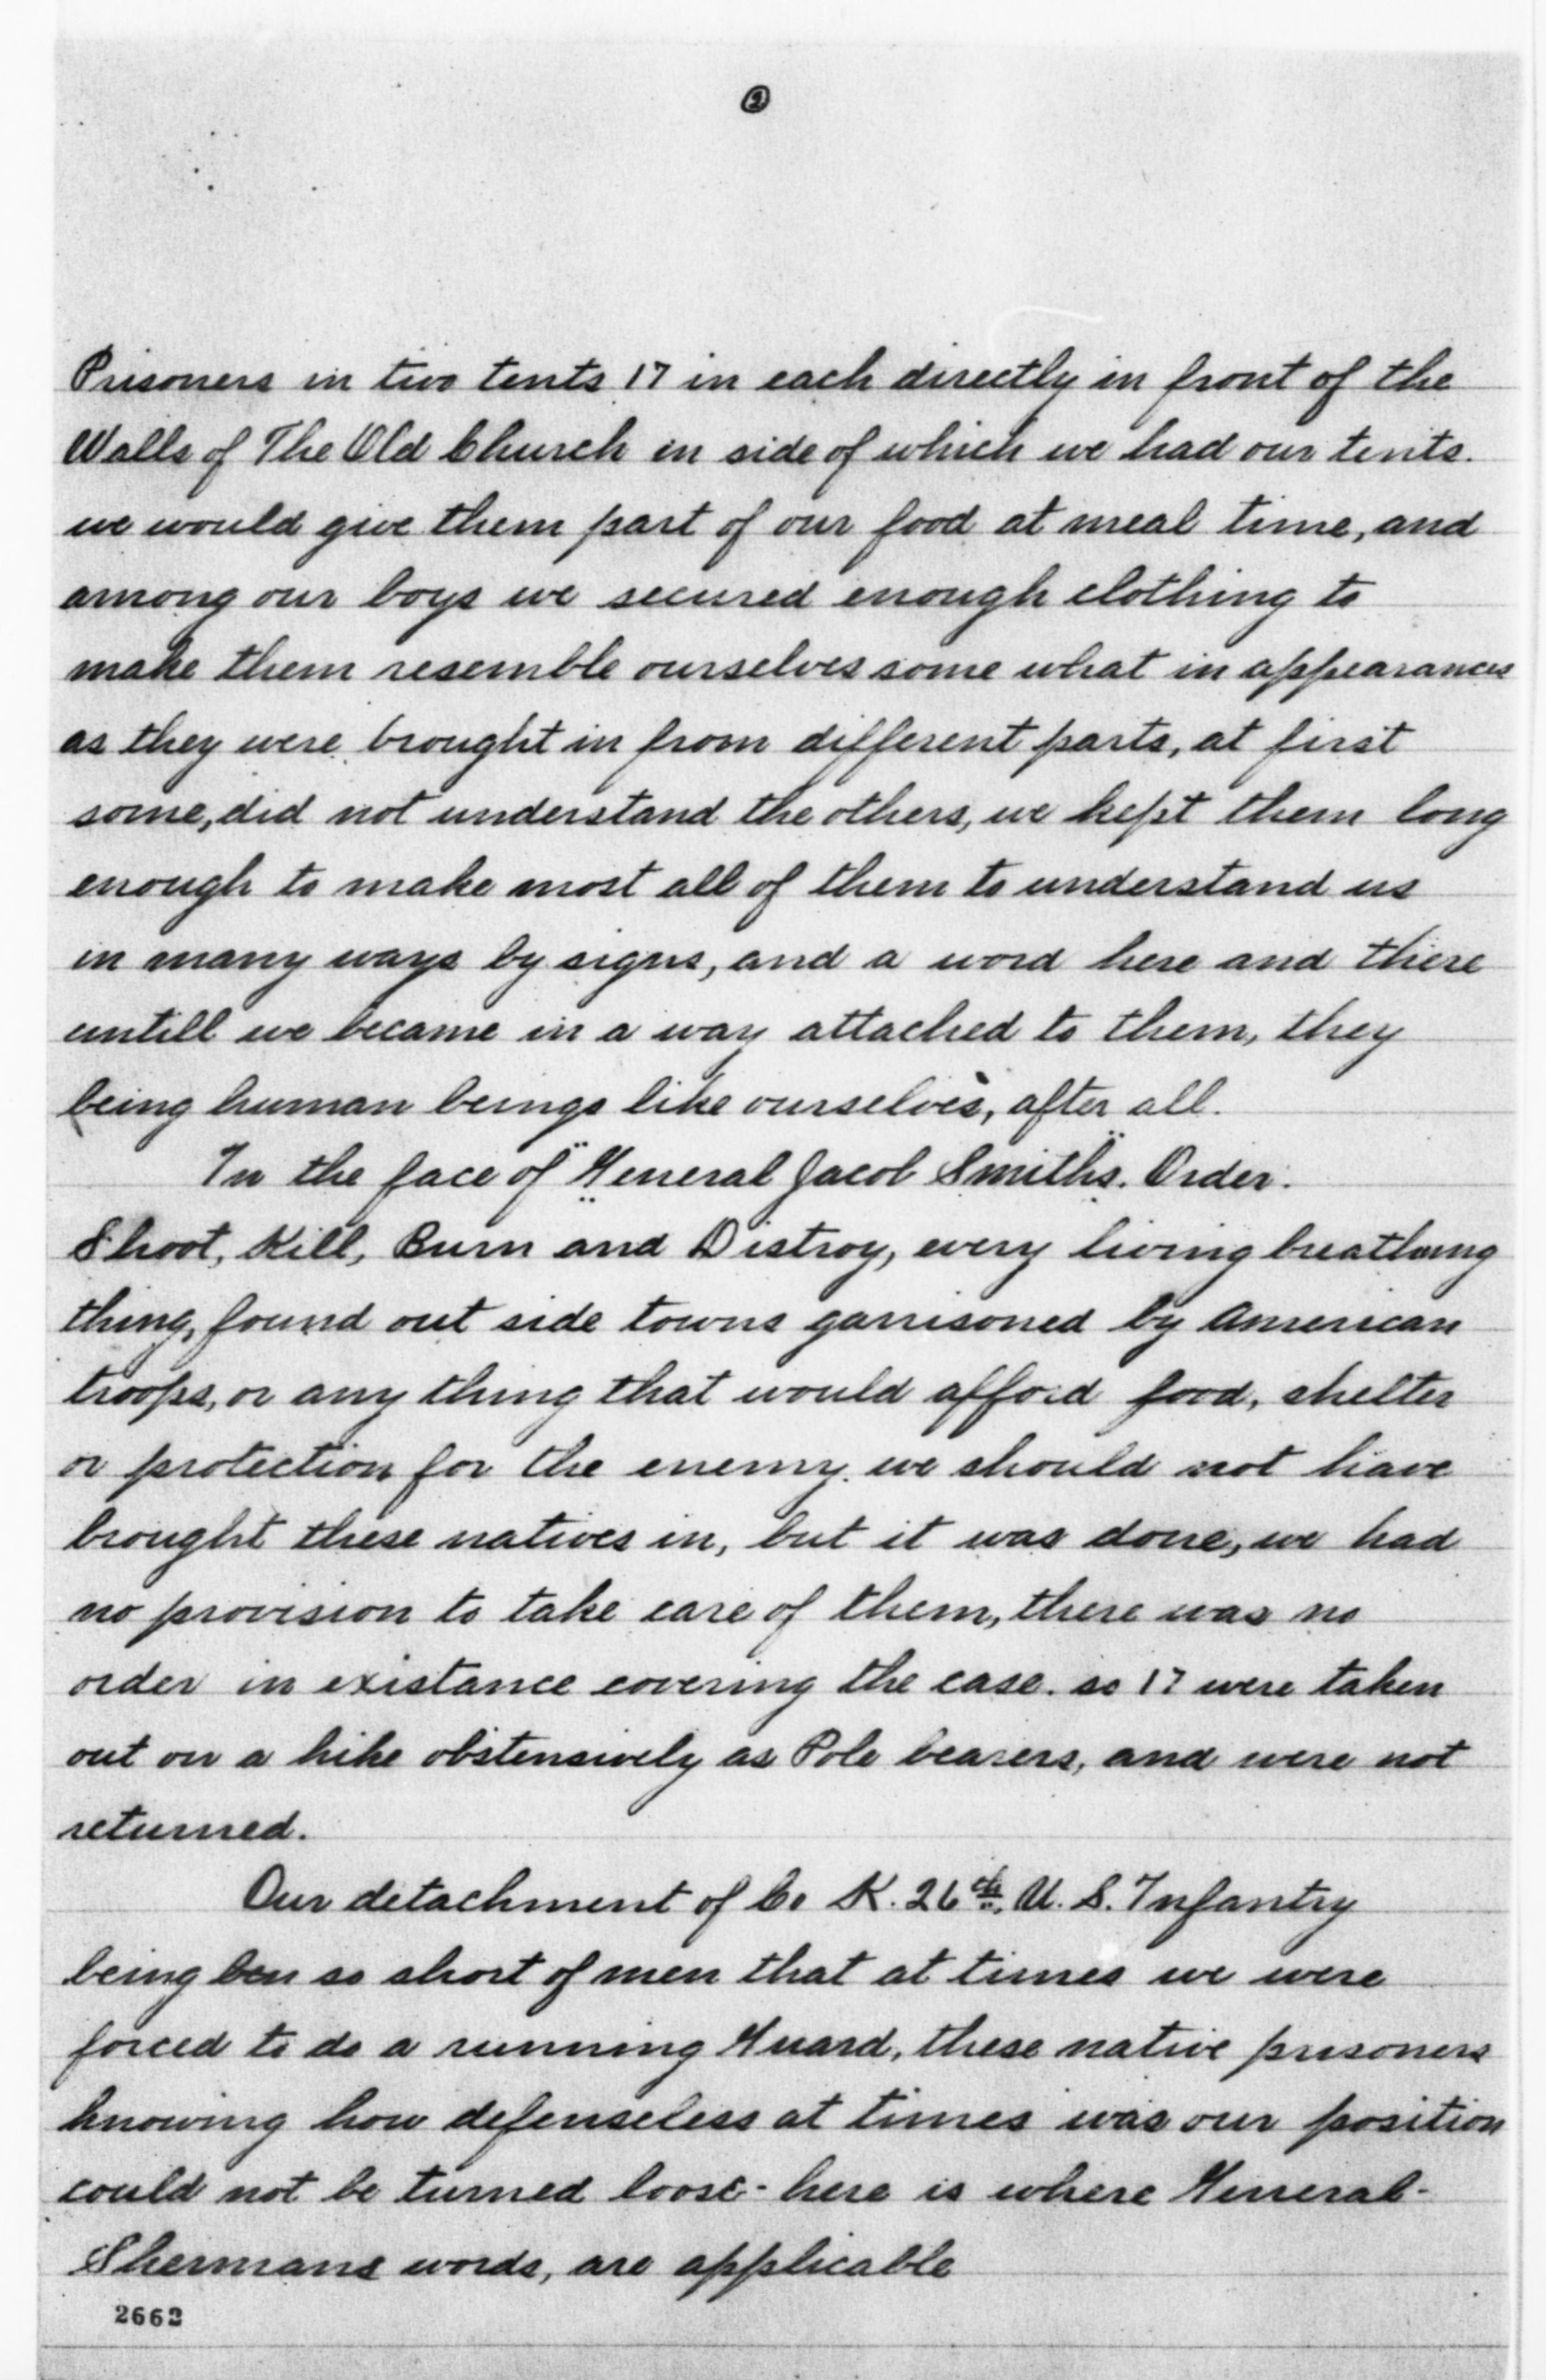 ②
Prisoners in two tents 17 in each directly in front of the
Walls of The Old Church in side of which we had our tents.
we would give them part of our food at meal time, and
among our boys we secured enough clothing to
make them resemble ourselves some what in appearances
as they were brought in from different parts, at first
some, did not understand the others, we kept them long
enough to make most all of them to understand us
in many ways by signs, and a word here and there
untill we became in a way attached to them, they
being human beings like ourselves, after all.
In the face of "General Jacob Smiths." Order.
Shoot, Kill, Burn and Distroy, every living breathing
thing, found out side towns garrisoned by American
troops, or any thing that would afford food, shelter
or protection for the enemy. we should not have
brought these natives in, but it was done, we had
no provision to take care of them, there was no
order in existance covering the case. so 17 were taken
out on a hike obstensively as Pole bearers, and were not
returned.
Our detachment of Co K. 26th. U. S. Infantry
being so short of men that at times we were
forced to do a running Guard, these native prisoners
knowing how defenseless at times was our position
could not be turned loose - here is where General-
Shermans words, are applicable
2662